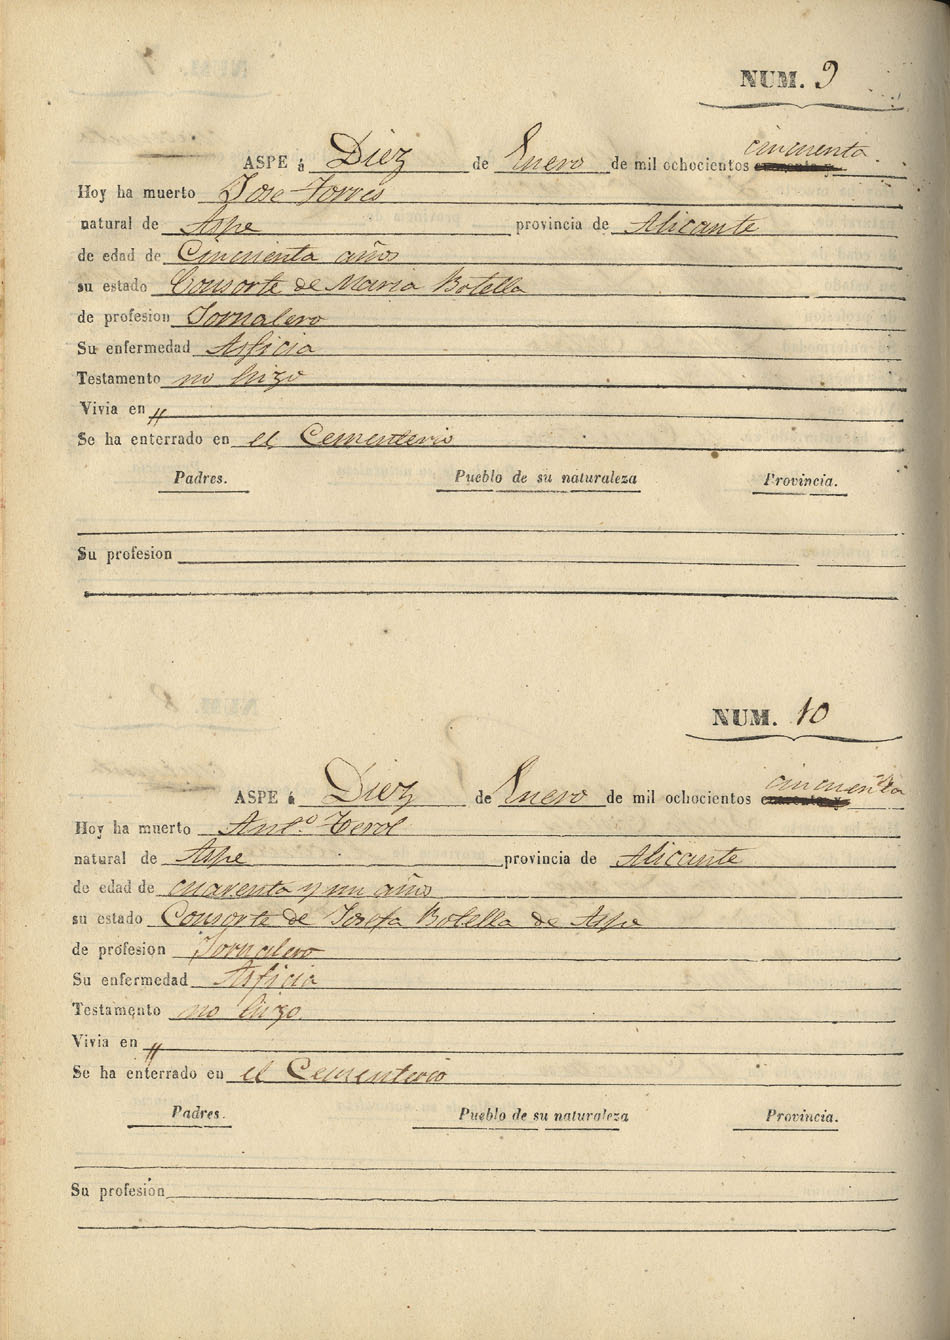 NUM. 9
ASPE á Diez de Enero de mil ochocientos cincuenta
Hoy ha muerto Jose Torres
natural de Aspe provincia de Alicante
de edad de Cincuenta años
su estado Consorte de Maria Botella
de profesion Jornalero
Su enfermedad Asficia
Testamento no hizo
Vivia en "
Se ha enterrado en el Cementerio
Padres. Pueblo de su naturaleza Provincia.
Su profesion
NUM. 10
ASPE á Diez de Enero de mil ochocientos cincuenta
Hoy ha muerto Ant.º Terol
natural de Aspe provincia de Alicante
de edad de cuarenta y un año
su estado Consorte de Josefa Botella de Aspe
de profesion Jornalero
Su enfermedad Asficia
Testamento no hizo
Vivia en "
Se ha enterrado en el Cementerio
Padres. Pueblo de su naturaleza Provincia.
Su profesion